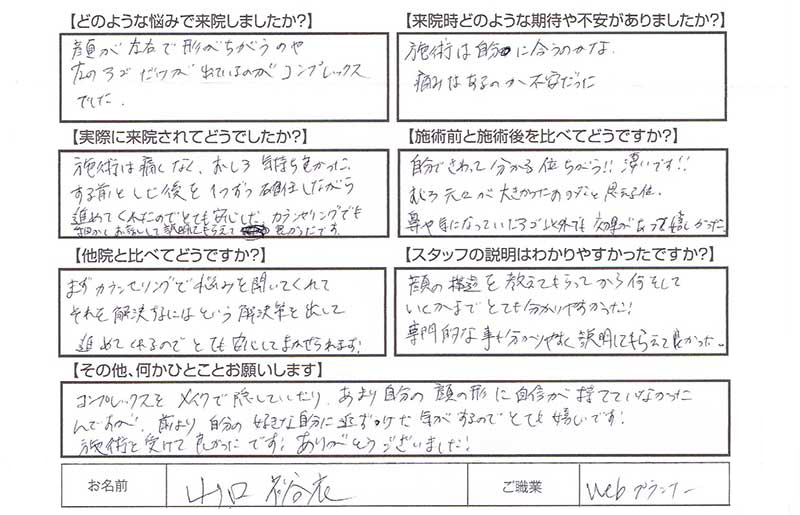 【どのような悩みで来院しましたか?】
顔が左右で形がちがうのや
左のエラだけが出ているのがコンプレックス
でした.
【来院時どのような期待や不安がありましたか?】
施術は自分に合うのかな.
痛みはあるのか不安だった
【実際に来院されてどうでしたか?】
施術は痛くなく、むしろ気持ち良かった.
する前とした後をいつずつ確認しながら
進めてくれたのでとても安心した.カウンセリングでも
細かくお話しして説明してもらえて良かったです.
【施術前と施術後を比べてどうですか?】
自分でさわって分かる位ちがう!! 凄いです!!
むしろ元々が大きかったあのかなと思える位.
鼻や気になっていたエラ以外でも効果があって嬉しかった.
【他院と比べてどうですか?】
まずカウンセリングで悩みを聞いてくれて
それを解決するにはという解決策を出して
進めてくれるのでとても安心してまかせられます!
【スタッフの説明はわかりやすかったですか?】
顔の構造を教えてもらってから何をして
いくかまでとても分かりやすかった!
専門的な事も分かりやすく説明してもらえて良かった.
【その他、何かひとことお願いします】
コンプレックスをメイクで隠していたり、あまり自分の顔の形に自信が持てていなかった
んですが、前より自分の好きな自分に近ずけた気がするのでとても嬉しいです!
施術を受けて良かったです! ありがとうございました!
お名前 山口 裕衣 ご職業 Webプランナー